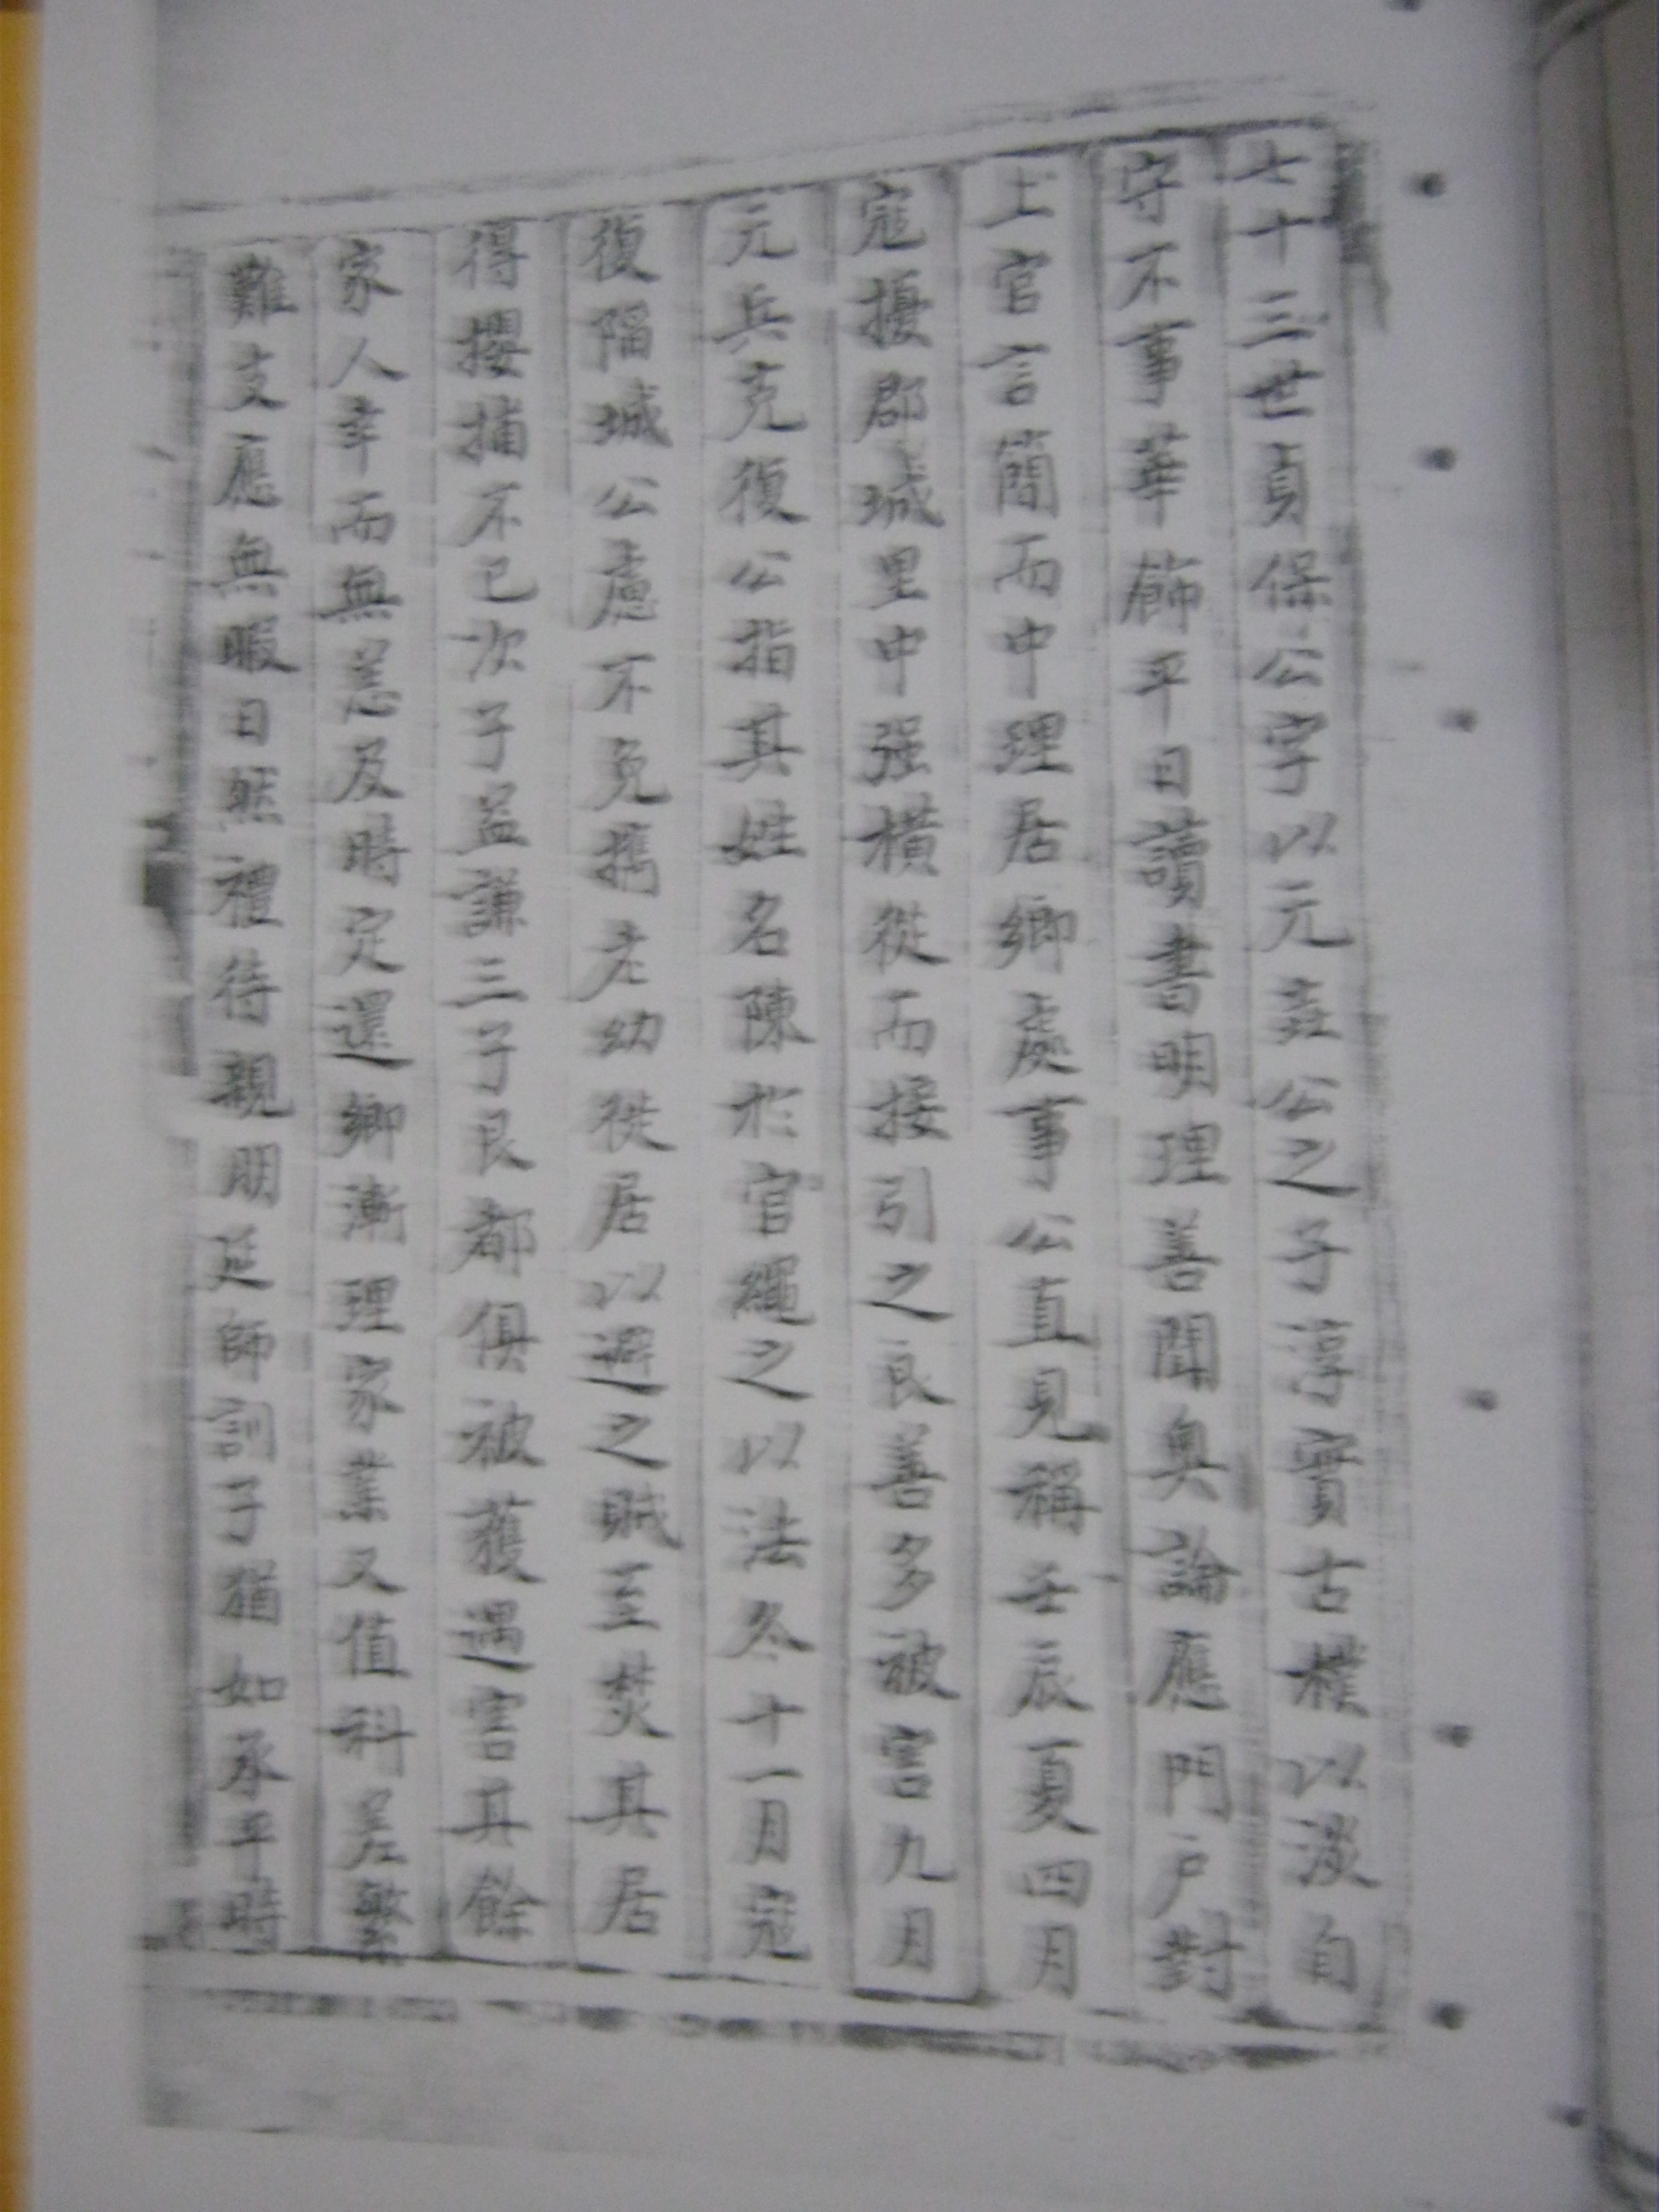 七十三世貞保公字以元垚公之子淳實古樸以淡自
守不事華飾平日讀書明理善聞奥論應門戶對
上官言簡而中理居鄉處事公直見稱壬辰夏四月
寇擾郡城里中强橫從而接引之良善多被害九月
元兵克復公指其姓名陳於官繩之以法冬十一月寇
復陷城公慮不免携老幼徙居以避之賊至焚其居
得攖捕不已次子益謙三子艮都俱被獲遇害其餘
家人幸而無恙及時定還鄉漸理家業又值科差繁
難支應無暇日然禮待親朋延師訓子猶如承平時